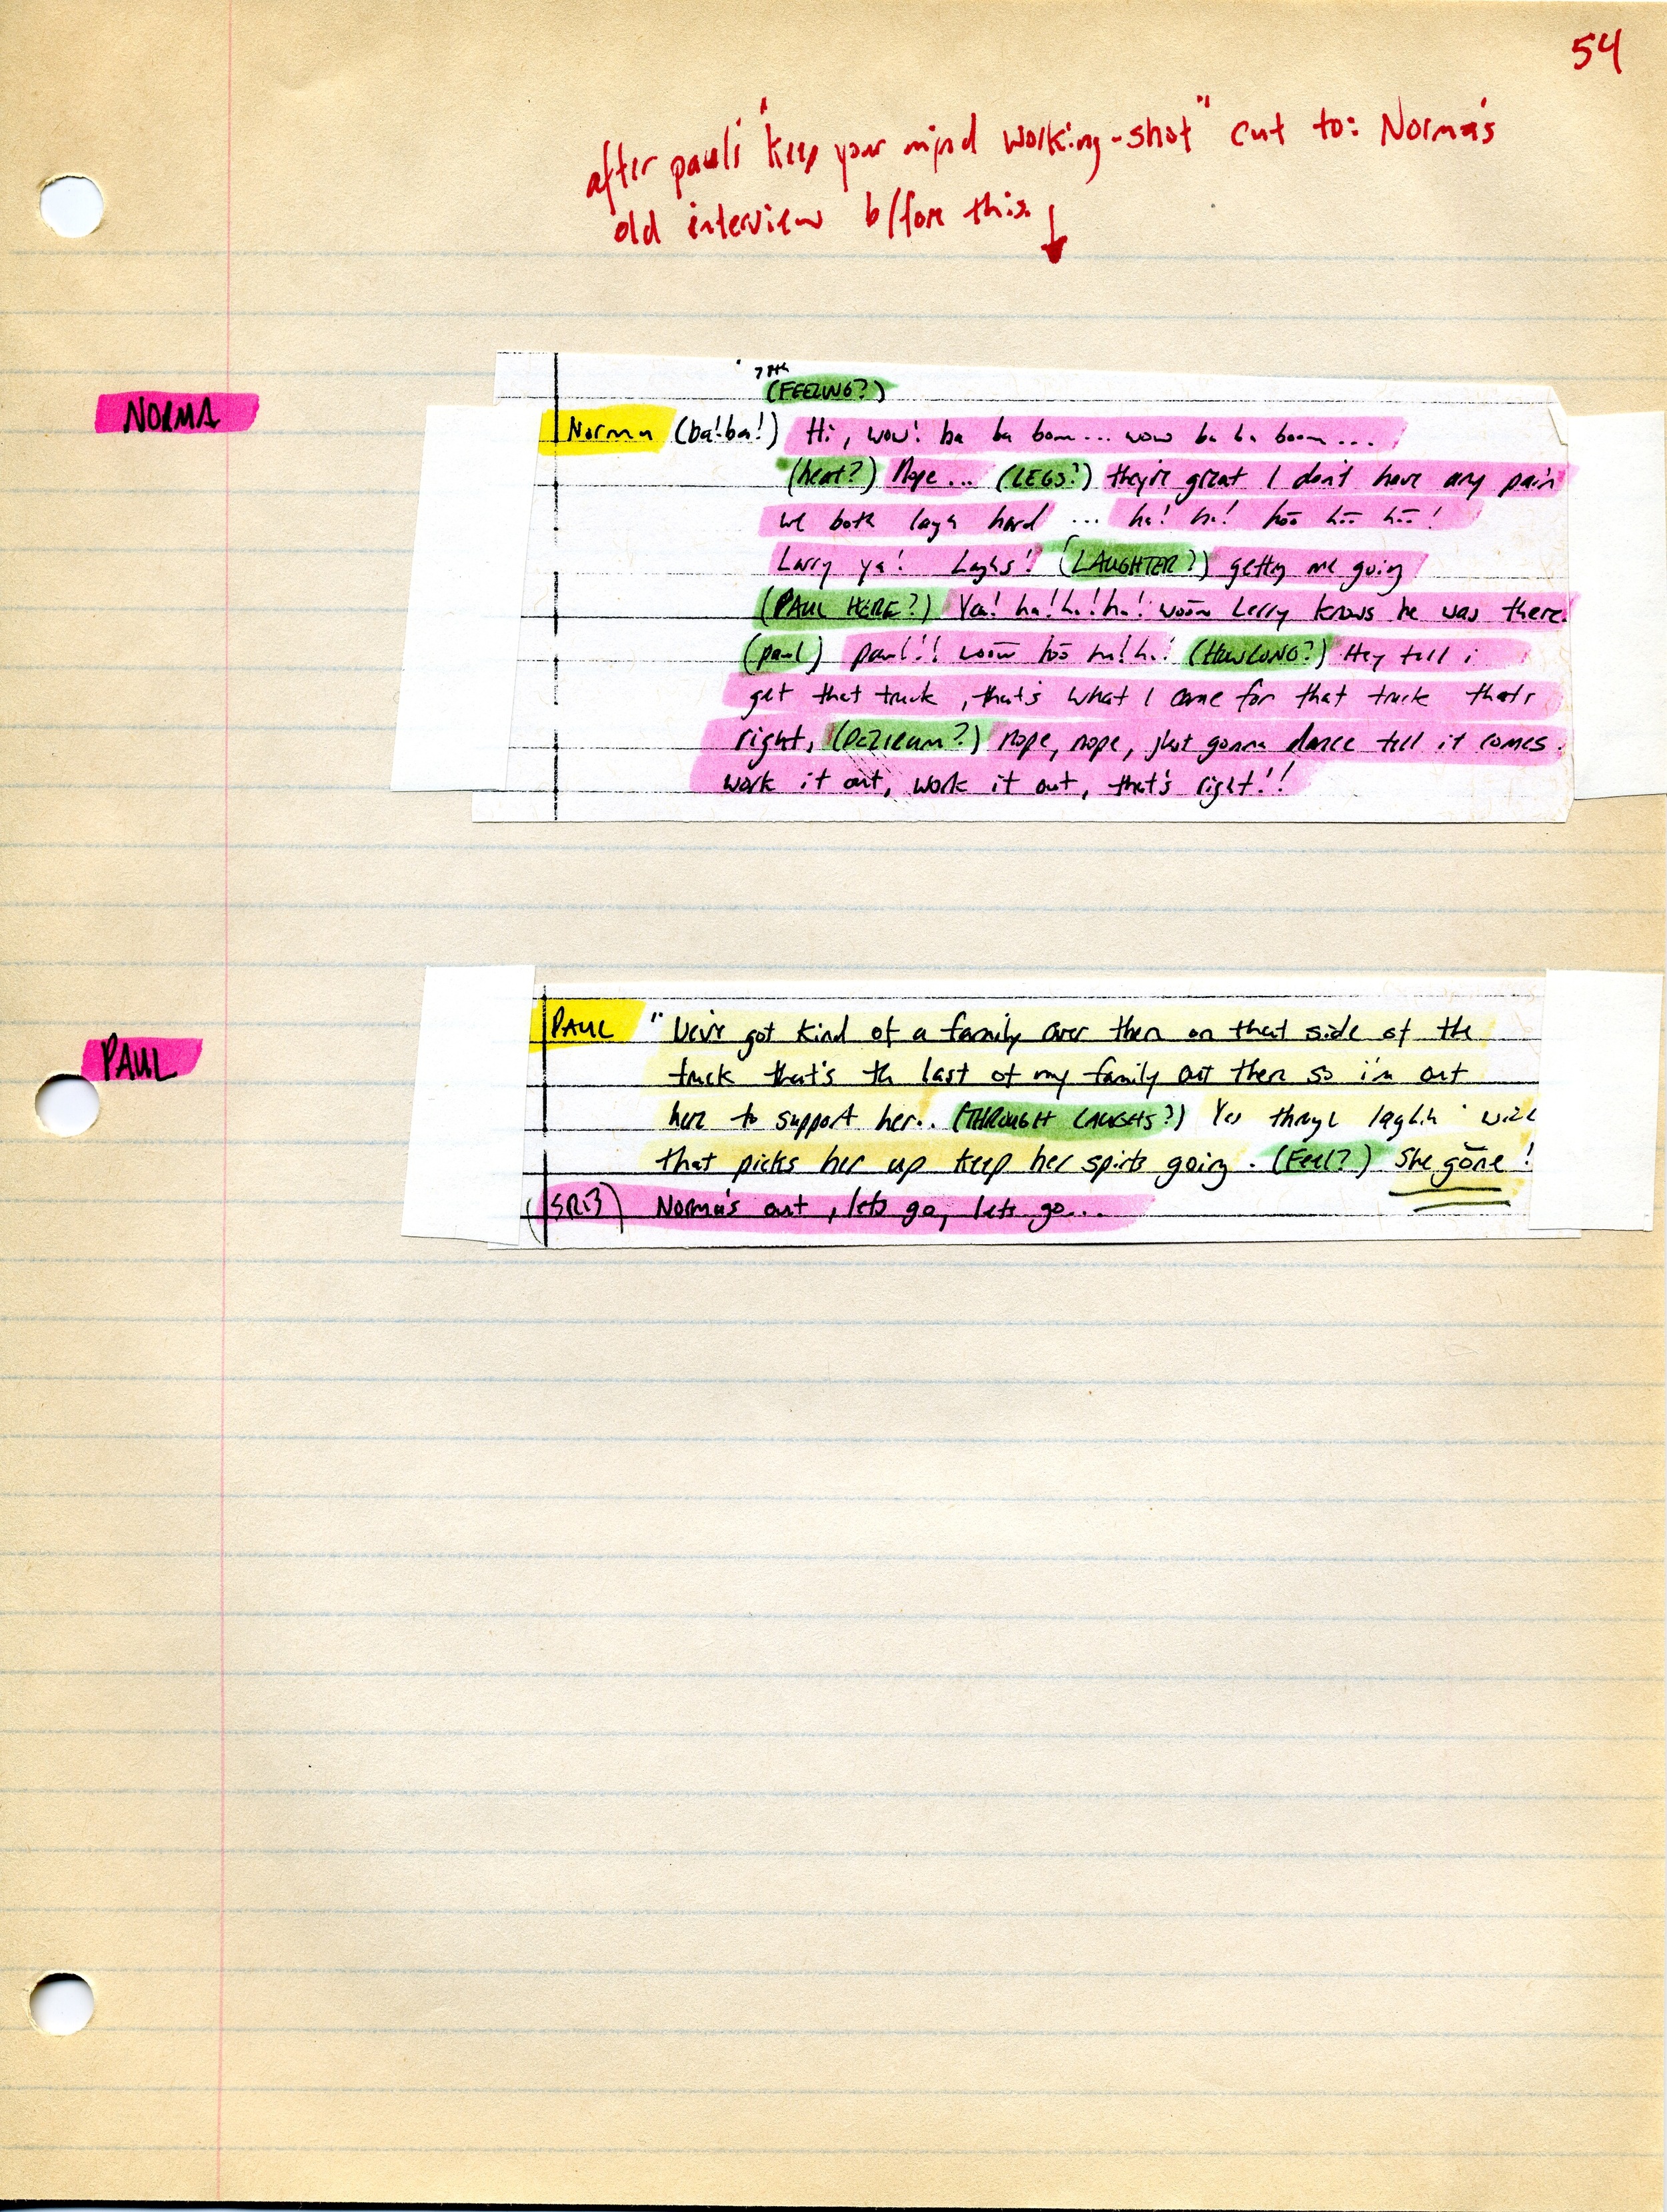 54
after paul's "keep your mind working-shot" cut to: Norma's
old interview b/fore this
NORMA
78th
(FEELING?)
Norma (ba!ba!) Hi, wow! ba ba bom... wow ba ba boom...
(heat?) Nope... (LEGS?) they're great I don't have any pain
we both laugh hard ... ha! ha! hōō hōō hōō!
Larry ya! Laghs! (LAUGHTER?) getting me going
(PAUL HERE?) Yea! ha!ha!ha! wōōō Lerry knows he was there.
(paul) paul!! wōōō hōō ha!ha! (HOW LONG?) Hey till i
get that truck, that's what I came for that truck thats
right, (DELIRIUM?) nope, nope, just gonna dance till it comes.
work it out, work it out, that's right!!
PAUL
PAUL "We've got kind of a family over there on that side of the
truck that's th last of my family out there so i'm out
here to support her.. (THROUGH LAUGHS?) Yes through laghin'
that picks her up keep her spirits going. (Feel?) She gōne!
Norma's out, lets go, lets go...